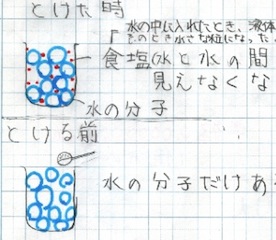 とけた時
「水の中に入れたとき、液体
そのとき小さな粒になった
食塩(水と水の間
見えなくな
水の分子
とける前
水の分子だけあ